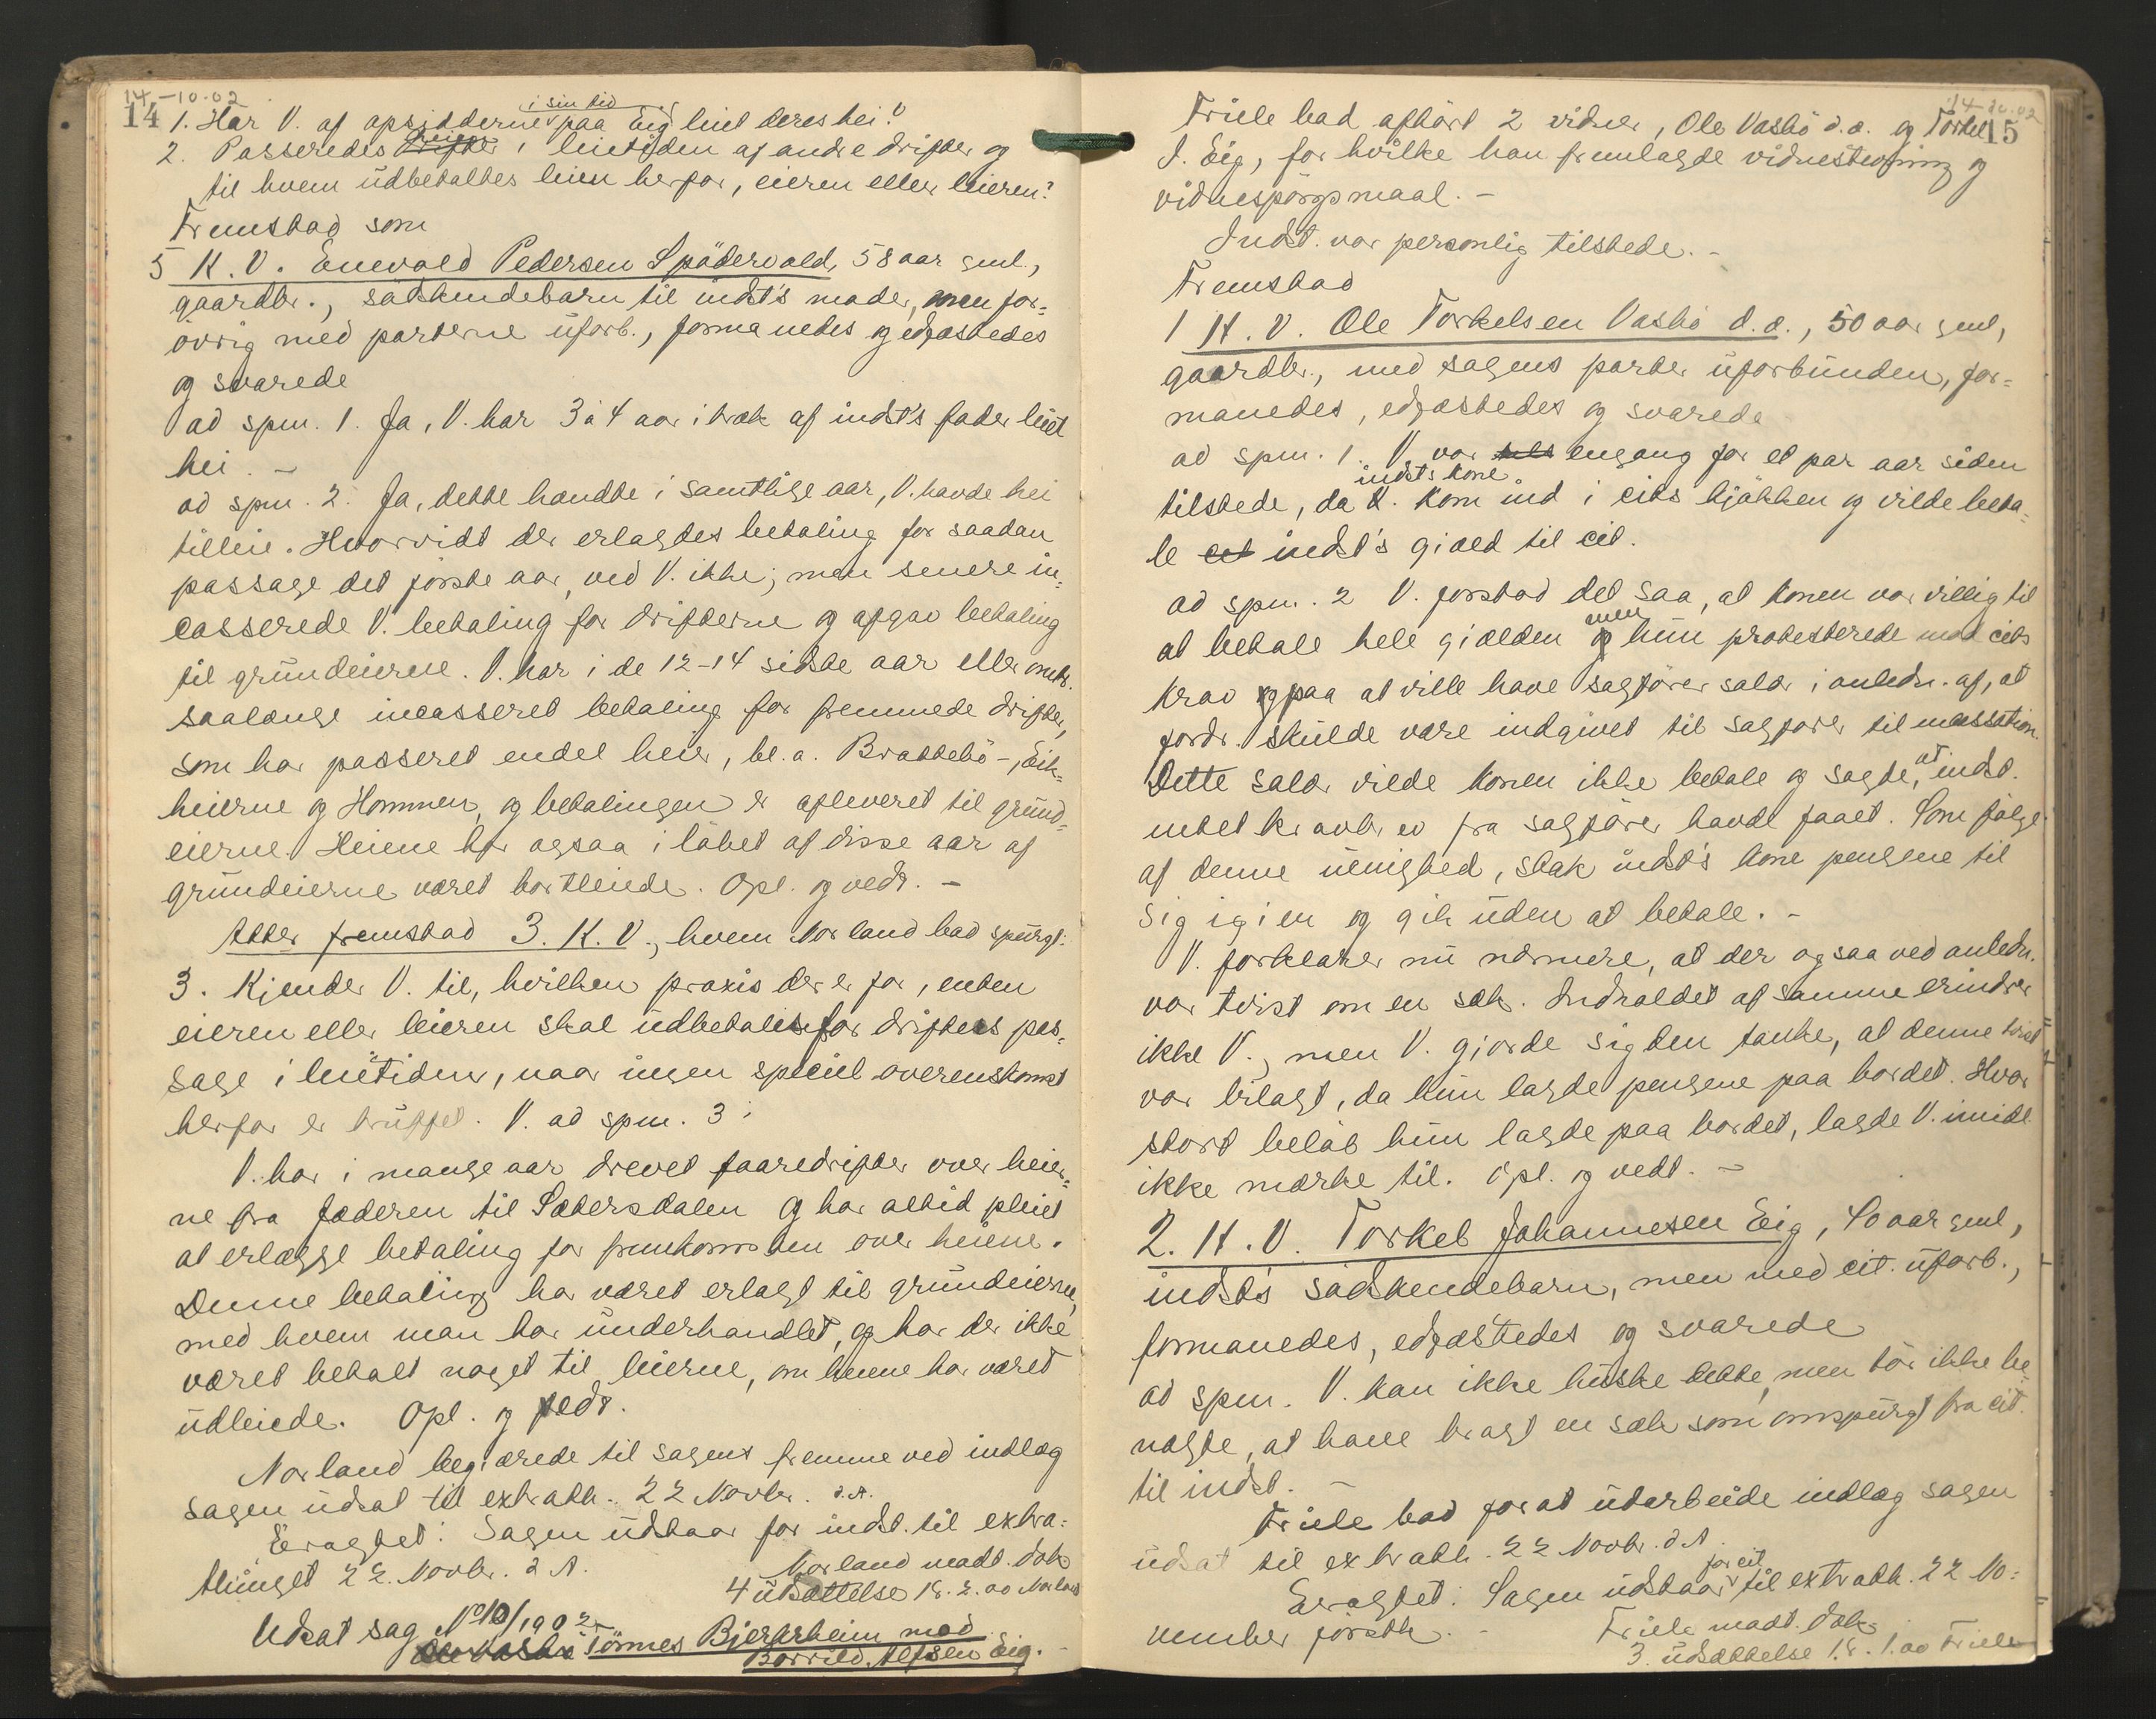 14-10-02
14 1. Har V. af opsidderne i sin tid paa Eig leiet deres hei?
2. Passeredes heien i leietiden af andre drifter og
til hvem udbetaltes leien herfor, eieren eller leieren?
Fremstod som
5 K. V. Enevald Pedersen Spödervold, 58 aar gml.,
gaardbr., södskendebarn til indst's moder, men for=
övrig med parterne uforb., formanedes og edfæstedes
og svarede
ad spm. 1. Ja, V. har 3 à 4 aar i træk af indst's fader leiet
hei. -
ad spm. 2. Ja, dette hændte i samtlige aar, V. havde hei
tilleie. Hvorvidt der erlagdes betaling for saadan
passage det förste aar, ved V. ikke; men senere in=
casserede V. betaling for drifterne og afgav betaling
til grundeierne. V. har i de 12-14 sidste aar eller omtr.
saalænge incasseret betaling for fremmede drifter,
som har passeret endel heier, bl. a. Brattebö-, Eik=
heierne og Hommen, og betalingen er afleveret til grund=
eierne. Heiene har ogsaa i löbet af disse aar af
grundeierne været bortleiede. Opl. og vedt. -
Atter fremstod 3. K. V., hvem Norland bad spurgt:
3. Kjender V. til, hvilken praxis der er for, enten
eieren eller leieren skal udbetales for drifters pas=
sage i leietiden, naar ingen speciel overenskomst
herfor er truffet. V. ad spm. 3:
V. har i mange aar drevet faaredrifter over heier=
ne fra Jæderen til Sætersdalen og har altid pleiet
at erlægge betaling for fremkomsten over heiene.
Denne betaling har været erlagt til grundeierne,
med hvem man har underhandlet, og har der ikke
været betalt noget til leierne, om heiene har været
udleiede. Opl. og vedt.
Norland begjærede til sagens fremme ved indlæg
sagen udsat til extrath. 22 Novbr. d. A.
Eragtet: Sagen udstaar for indst. til extra=
thinget 22. Novbr. d A.
Norland modt. dok
4 udsættelse 18. 2.00 Norland
Udsat sag No 10/1902
Ole Vasbö Tönnes Bjerarheim mod
Borrild Alfsen Eig. -
14-10-02
15
Friele bad afhört 2 vidner, Ole Vasbö d. æ. og Torkel
J. Eig, for hvilke han fremlagde vidnestevning og
vidnespörgsmaal. -
Indst. var personlig tilstede. -
Fremstod
1 H. V. Ole Torkelsen Vasbö d. æ., 50 aar gml,
gaardbr., med sagens parter uforbunden, for=
manedes, edfæstedes og svarede
ad spm. 1. V. var engang for et par aar siden
tilstede, da indst's kone kom ind i cits kjökken og vilde beta=
le cit indst's gjæld til cit.
ad spm. 2 V. forstod det saa, at konen var villig til
at betale hele gjælden men hun protesterede mod cits
krav paa at ville have sagförersalær i anledn. af, at
fordr. skulde være indgivet til sagförer til incassation.
Dette salær vilde konen ikke betale og sagde, at indst.
intet kravbrev fra sagförer havde faaet. Som fölge
af denne uenighed, stak indst's kone pengene til
sig igjen og gik uden at betale. -
V. forklarer nu nærmere, at der ogsaa ved anledn.
var tvist om en sæk. Indholdet af samme erindrer
ikke V., men V. gjorde sig den tanke, at denne tvist
var bilagt, da hun lagde pengene paa bordet. Hvor
stort belöb hun lagde paa bordet, lagde V. imidl.
ikke mærke til. Opl. og vedt. -
2. H. V. Torkel Johannesen Eig, 40 aar gml,
indst's södskendebarn, men med cit. uforb.,
formanedes, edfæstedes og svarede
ad spm. V. kan ikke huske dette, men tör ikke be=
nægte, at have bragt en sæk som omspurgt fra cit.
til indst. -
Friele bad for at udarbeide indlæg sagen
udsat til extrath. 22 Novbr. d. A.
Eragtet: Sagen udstaar for cit. til extrath. 22 No=
vember förstk. -
Friele modt. dok
3. udsættelse 18. 1.00 Friele